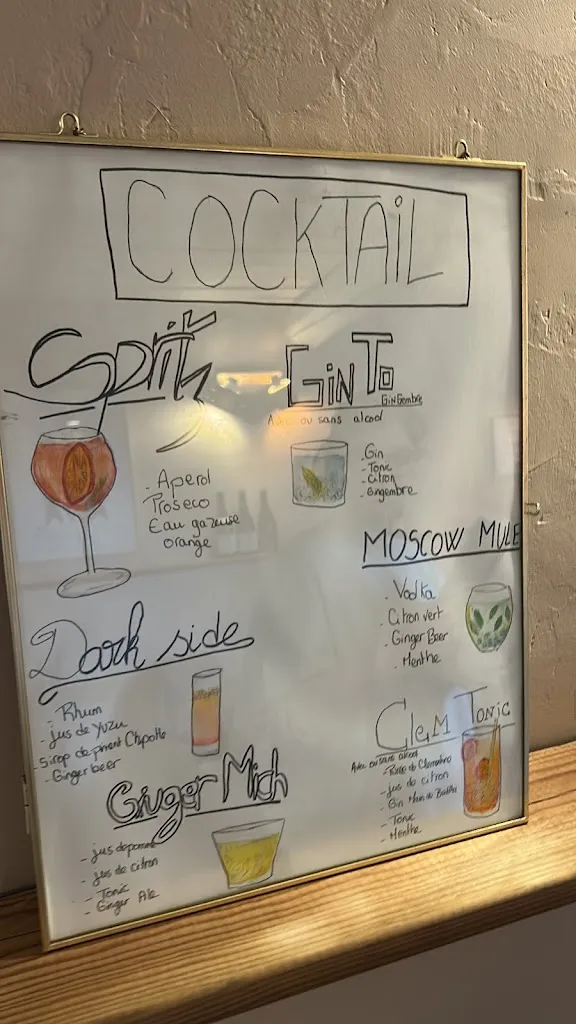 COCKTAIL
Spritz
- Aperol
Proseco
Eau gazeuse
orange
GiN To
GinGembre
Avec ou sans alcool
- Gin
- Tonic
- Citron
- Gingembre
MOSCOW MULE
- Vodka
- Citron vert
- Ginger Beer
- Menthe
Dark side
- Rhum
- jus de Yuzu
- Sirop de piment Chipotle
- Ginger beer
Clem Tonic
Avec ou sans alcool
- de Clementine
- jus de citron
- Gin
- Tonic
- Menthe
Ginger Mich
- jus de pomme
- jus de citron
- Tonic
- Ginger Ale